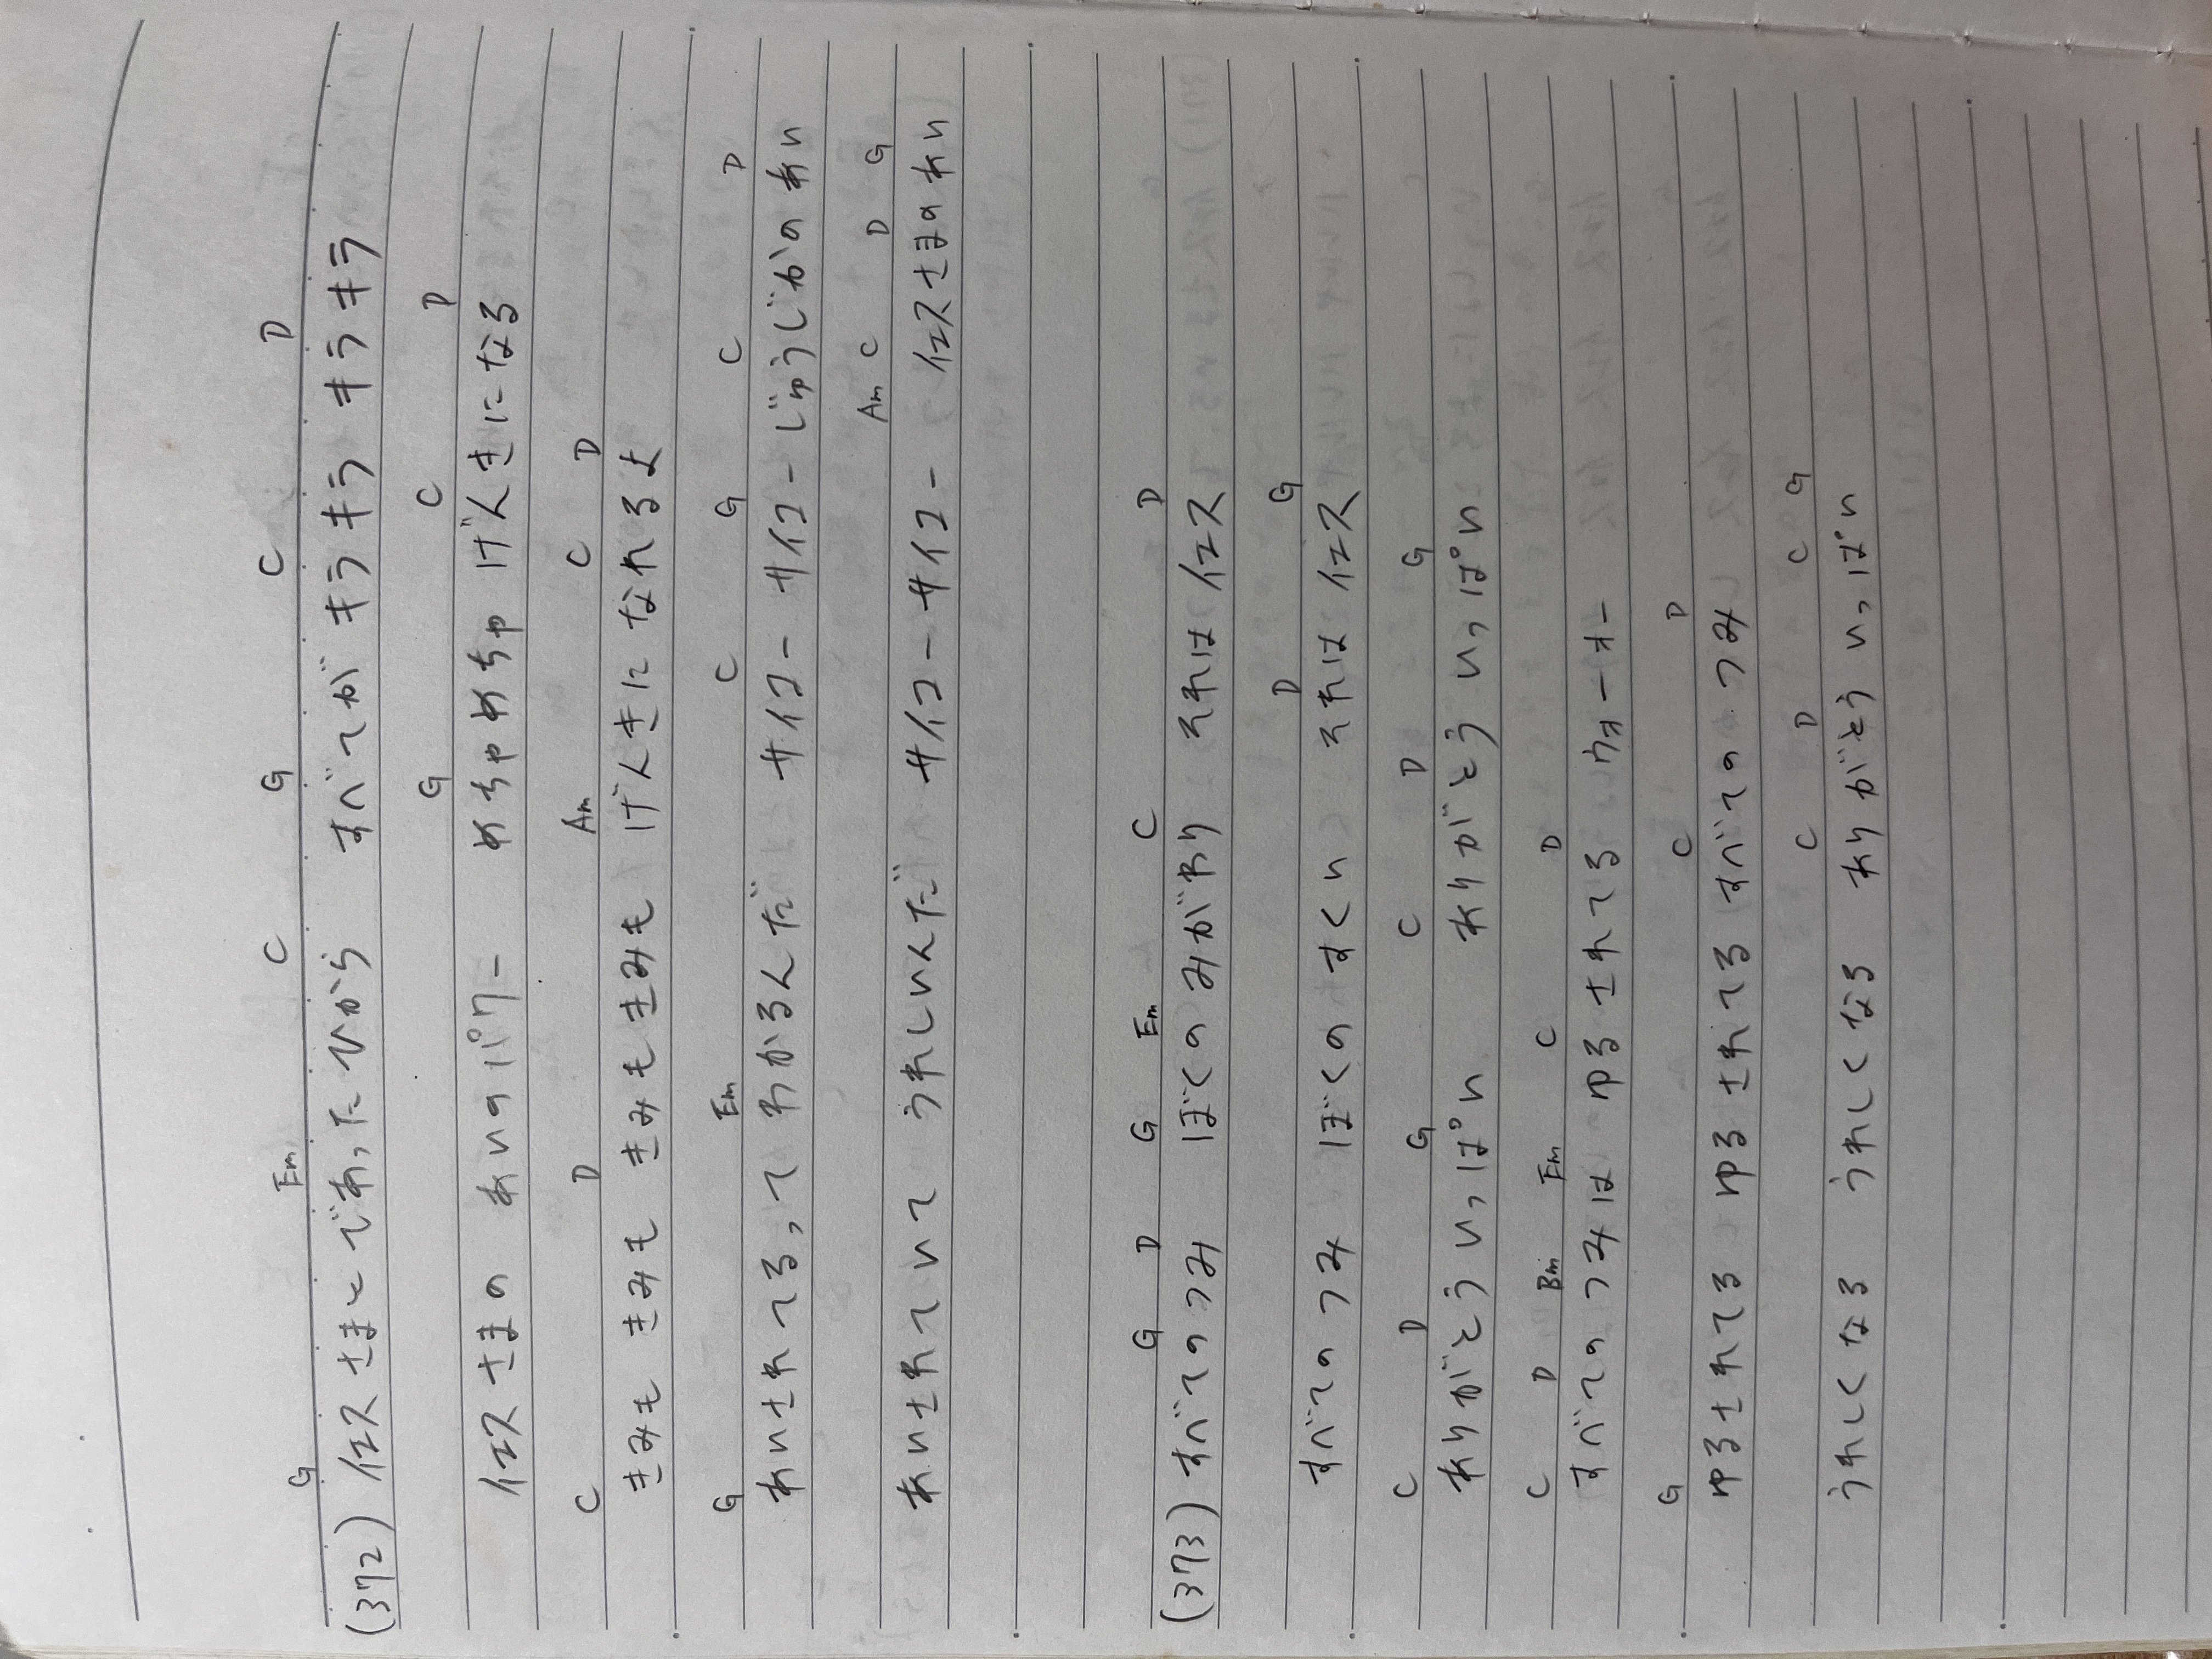 G Em C G C D
(372) イエスさまとであったひから すべてが キラキラキラキラ
G C D
イエスさまの あいのパワー めちゃめちゃ げんきになる
C D Am C D
きみも きみも きみもきみも げんきに なれるよ
G Em C G C D
あいされてるって わかるんだ サイコー サイコー じゅうじかの あい
Am C D G
あいされていて うれしいんだ サイコー サイコー イエスさまの あい
G D G Em C D
(373) すべてのつみ ぼくの みがわり それは イエス
D G
すべてのつみ ぼくの すくい それは イエス
C D G C D G
ありがとう いっぱい ありがとう いっぱい
C D Bm Em C D
すべてのつみは ゆるされてる ウォーオー
G C D
ゆるされてる ゆるされてる すべてのつみ
C D C G
うれしくなる うれしくなる ありがとう いっぱい